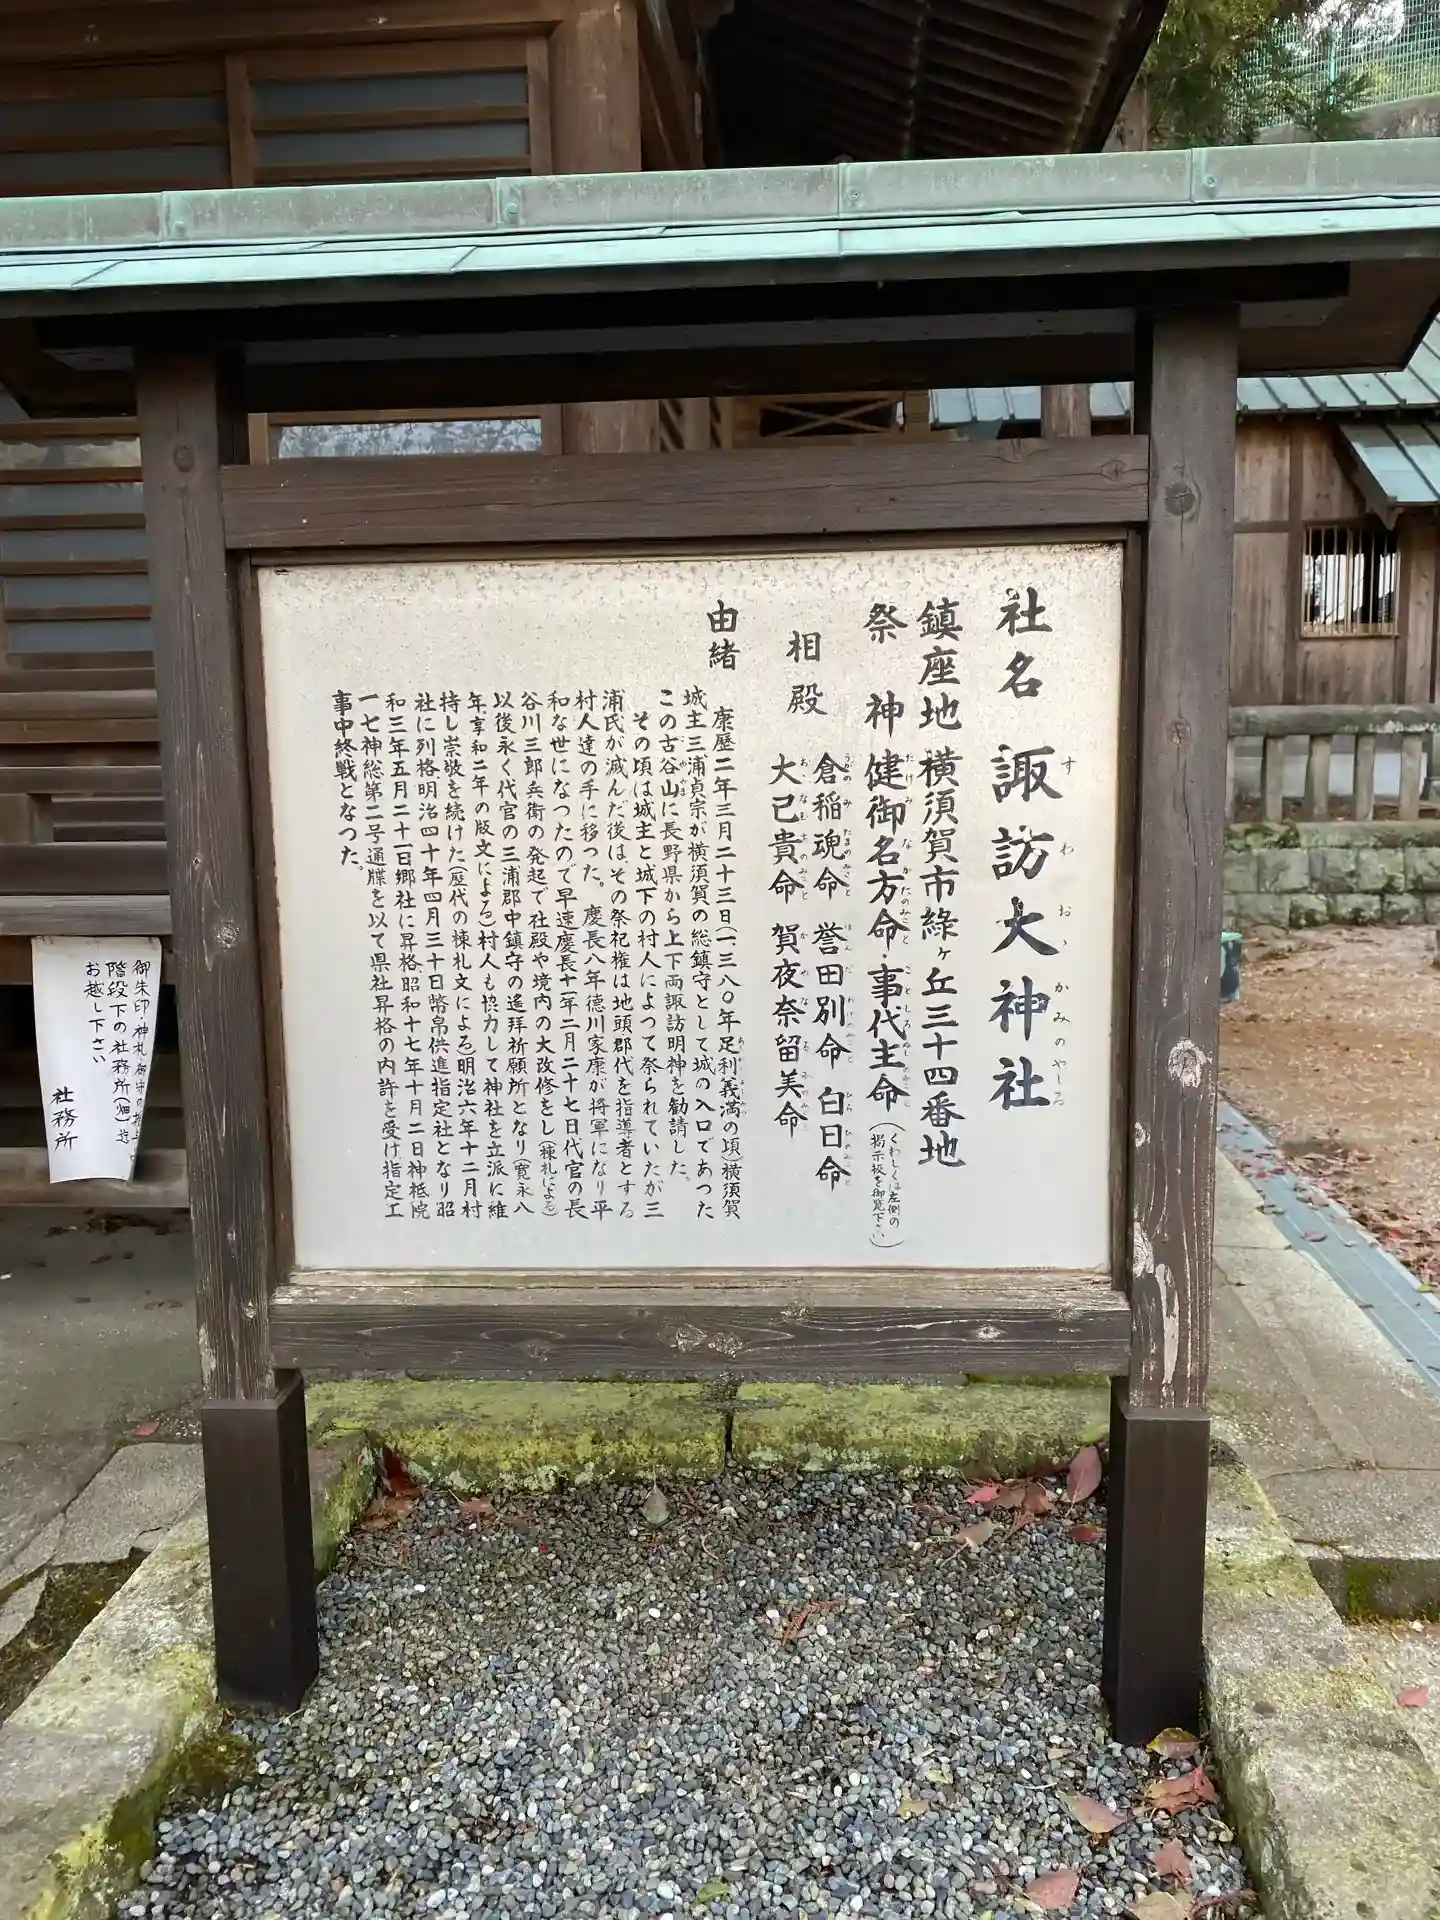 社名 諏訪大神社
すわのおゝかみのやしろ
鎮座地 横須賀市緑ヶ丘三十四番地
祭神 健御名方命・事代主命(くわしくは左側の掲示板を御覧下さい)
たけみなかたのみこと ことしろぬしのみこと
相殿 倉稲魂命 誉田別命 白日命
大己貴命 賀夜奈留美命
由緒
康歴二年三月二十三日(一三八〇年足利義満の頃)横須賀
城主三浦貞宗が横須賀の総鎮守として城の入口であった
この古谷山に長野県から上下両諏訪明神を勧請した。
その頃は城主と城下の村人によって祭られていたが三
浦氏が滅んだ後は、その祭祀権は地頭郡代を指導者とする
村人達の手に移った。慶長八年徳川家康が将軍になり平
和な世になったので早速慶長十一年二月二十七日代官の長
谷川三郎兵衛の発起で社殿や境内の大改修をし(棟札による)
以後永く代官の三浦郡中鎮守の遙拝祈願所となり(寛永八
年享和二年の版文による)村人も協力して神社を立派に維
持し崇敬を続けた(歴代の棟札文による)明治六年十二月村
社に列格明治四十年四月三十日幣帛供進指定社となり昭
和三年五月二十一日郷社に昇格、昭和十七年十月二日神祗院
一七神総第二号通牒を以て県社昇格の内許を受け指定工
事中終戦となつた。
御朱印・神札・御守の
階段下の社務所(畑)迄
お越し下さい
社務所